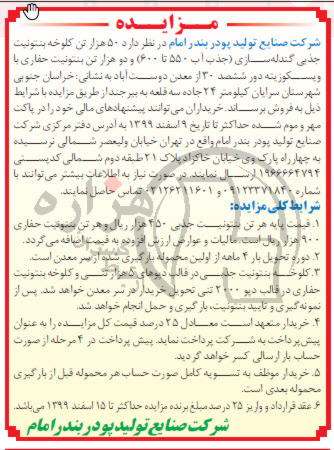 مـــزایـــده
شرکت صنایع تولید پودر بندر امام در نظر دارد ۵۰ هزار تن کلوخه بنتونیت
جذبی گندله‌سازی (جذب آب ۵۵۰ تا ۶۰۰) و دو هزار تن بنتونیت حفاری با
ویسکوزیته دور ششصد ۳۰ از معدن دوست‌آباد به نشانی: خراسان جنوبی
شهرستان سرایان کیلومتر ۲۴ جاده سه قلعه به بیرجند از طریق مزایده با شرایط
ذیل به فروش برساند. خریداران می‌توانند پیشنهادهای مالی خود را در پاکت
مهر و موم شده حداکثر تا تاریخ ۹ اسفند ۱۳۹۹ به آدرس دفتر مرکزی شرکت
صنایع تولید پودر بندر امام واقع در تهران خیابان ولیعصر شمالی نرسیده
به چهار راه پارک وی خیابان خاکزاد پلاک ۲۱ طبقه دوم شمالی کدپستی
۱۹۶۶۶۶۴۷۹۴ ارسال نمایند. در صورت نیاز به اطلاعات بیشتر می‌توانند با
شماره ۰۹۱۲۳۳۷۱۸۴۰ و ۰۲۱۲۶۲۱۱۶۰۱ تماس حاصل نمایند.
شرایط کلی مزایده:
۱. قیمت پایه هر تن بنتونیت جذبی ۴۵۰ هزار ریال و هر تن بنتونیت حفاری
۹۰۰ هزار ریال است. مالیات و عوارض ارزش افزوده به قیمت اضافه می‌گردد.
۲. دوره تحویل بار ۴ ماهه از اولین محموله بارگیری شده از سر معدن است.
۳. کلوخه بنتونیت جذبی در قالب دپوهای ۵ هزار تنی و کلوخه بنتونیت
حفاری در قالب دپو ۲۰۰۰ تنی تحویل خریدار در سر معدن خواهد شد. پس از
نمونه‌گیری و تایید بنتونیت، بارگیری و حمل انجام خواهد شد.
۴. خریدار متعهد است معادل ۲۵ درصد قیمت کل مزایده را به عنوان
پیش‌پرداخت به شرکت پرداخت نماید. پیش پرداخت در ۴ مرحله از صورت
حساب بار ارسالی کسر خواهد گردید.
۵. خریدار موظف به تسویه کامل صورت حساب هر محموله قبل از بارگیری
محموله بعدی است.
۶. عقد قرارداد و واریز ۲۵ درصد مبلغ برنده مزایده حداکثر تا ۱۵ اسفند ۱۳۹۹ می‌باشد.
شرکت صنایع تولید پودر بندر امام